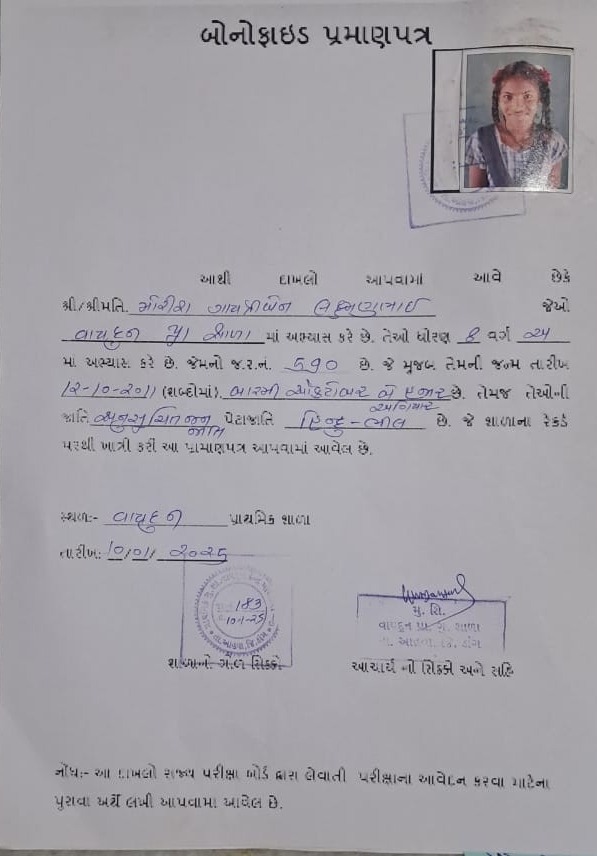 બોનોફાઇડ પ્રમાણપત્ર
આથી દાખલો આપવામાં આવે છેકે
શ્રી/શ્રીમતિ. ગાયત્રીબેન લક્ષ્મણભાઇ જેઓ
વાયદુન પ્રા શાળા માં અભ્યાસ કરે છે. તેઓ ધોરણ 8 વર્ગ અ
મા અભ્યાસ કરે છે. જેમનો જ.ર.નં. 590 છે. જે મુજબ તેમની જન્મ તારીખ
12-10-2011 (શબ્દોમાં). બારમી ઓક્ટોબર બે હજાર અગિયાર છે. તેમજ તેઓની
જાતિ અનુસુચિત જન જાતિ પેટાજાતિ હિન્દુ-ભીલ છે. જે શાળાના રેકર્ડ
પરથી ખાત્રી કરી આ પ્રામાણપત્ર આપવામાં આવેલ છે.
સ્થળ:- વાયદુન પ્રાથમિક શાળા
તારીખ: 10/01/2025
183
10-1-25
મુ. શિ.
વાયદુન પ્રા. શાળા
શાળાનો ગોળ સિક્કો
આચાર્ય નો સિક્કો અને સહિ
નોંધ:- આ દાખલો રાજ્ય પરીક્ષા બોર્ડ દ્વારા લેવાતી પરીક્ષાના આવેદન કરવા માટેના
પુરાવા અર્થે લખી આપવામા આવેલ છે.